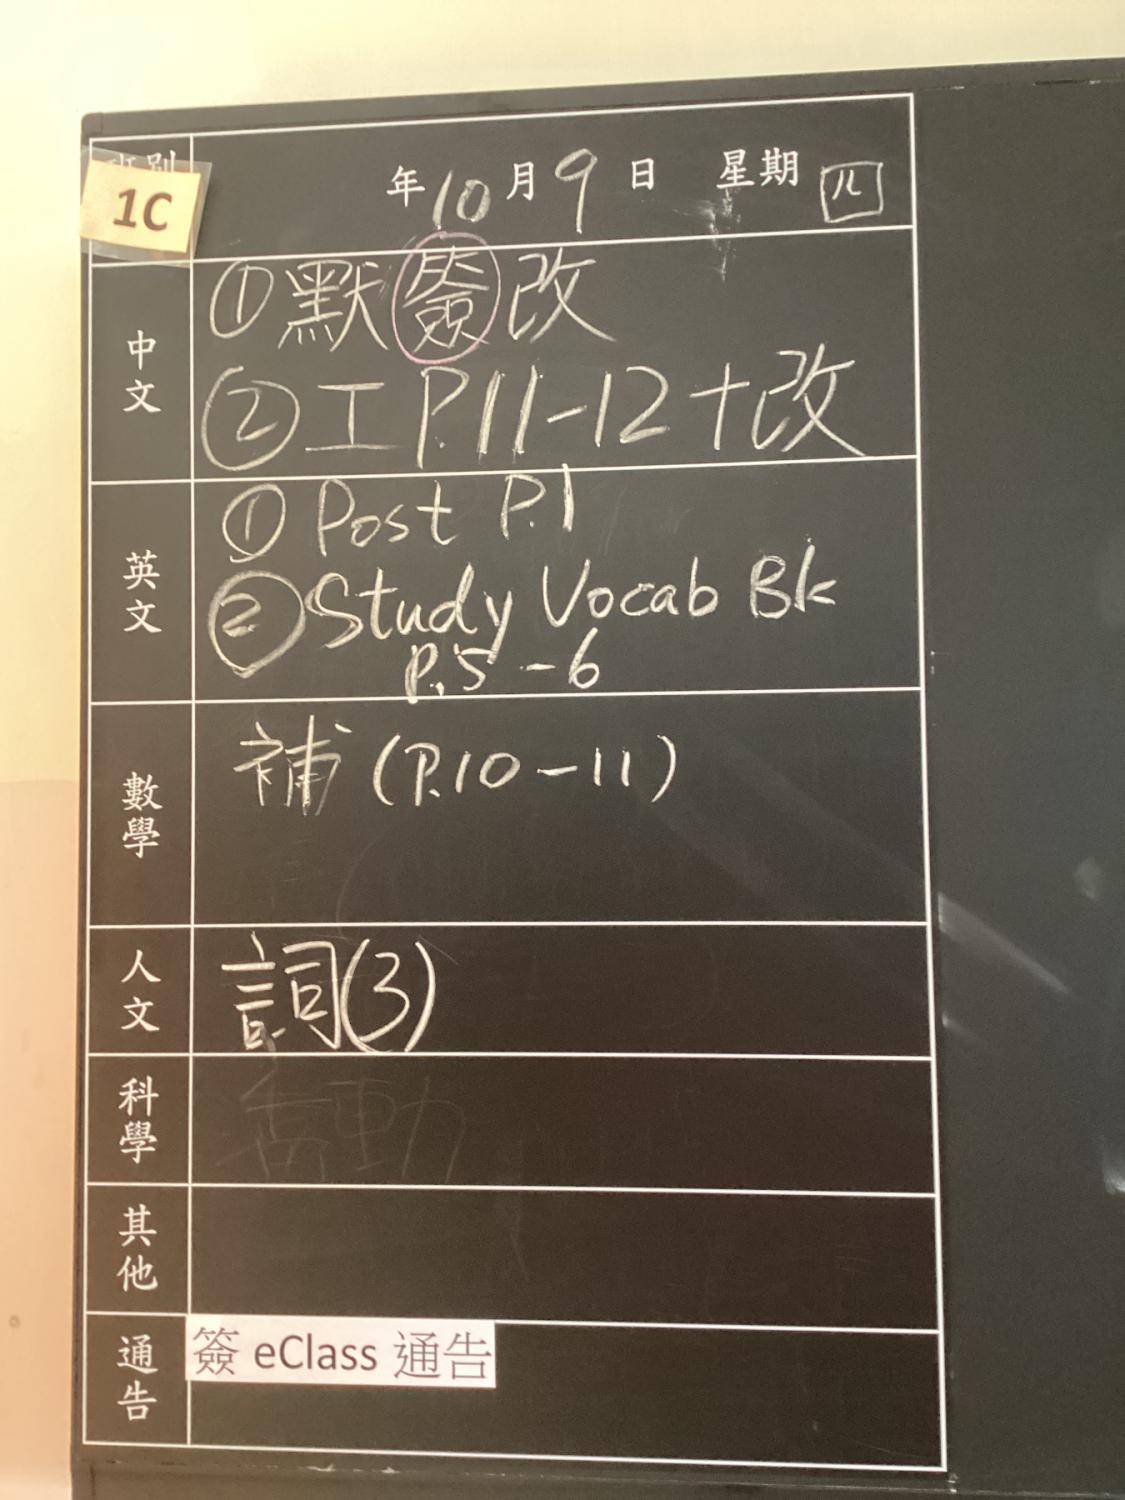 班別 1C
年10月9日 星期四
中文
①默簽改
②工P.11-12+改
英文
①Post P.1
②Study Vocab Bk
P.5-6
數學
補(P.10-11)
人文
詞(3)
科學
其他
通告
簽 eClass 通告